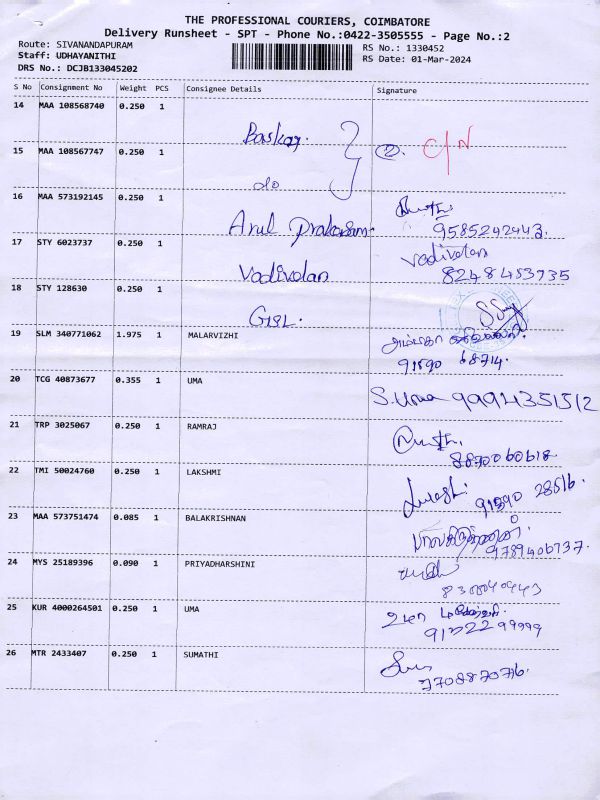 THE PROFESSIONAL COURIERS, COIMBATORE
Delivery Runsheet - SPT - Phone No.:0422-3505555 - Page No.:2
Route: SIVANANDAPURAM
Staff: UDHAYANITHI
DRS No.: DCJB133045202
RS No.: 1330452
RS Date: 01-Mar-2024
S No Consignment No Weight PCS Consignee Details Signature
14 MAA 108568740 0.250 1
Baskar.
C/N
15 MAA 108567747 0.250 1
do
16 MAA 573192145 0.250 1
Arul Prakasam
9585242443.
17 STY 6023737 0.250 1
Vadivelan
Vadivelan
8248453735
18 STY 128630 0.250 1
19 SLM 340771062 1.975 1 MALARVIZHI
91590 68714.
20 TCG 40873677 0.355 1 UMA
S.Uma 9994351512
21 TRP 3025067 0.250 1 RAMRAJ
8870060618.
22 TMI 50024760 0.250 1 LAKSHMI
91590 28516.
23 MAA 573751474 0.085 1 BALAKRISHNAN
9789406737.
24 MYS 25189396 0.090 1 PRIYADHARSHINI
25 KUR 4000264501 0.250 1 UMA
உமா
26 MTR 2433407 0.250 1 SUMATHI
9708870716.